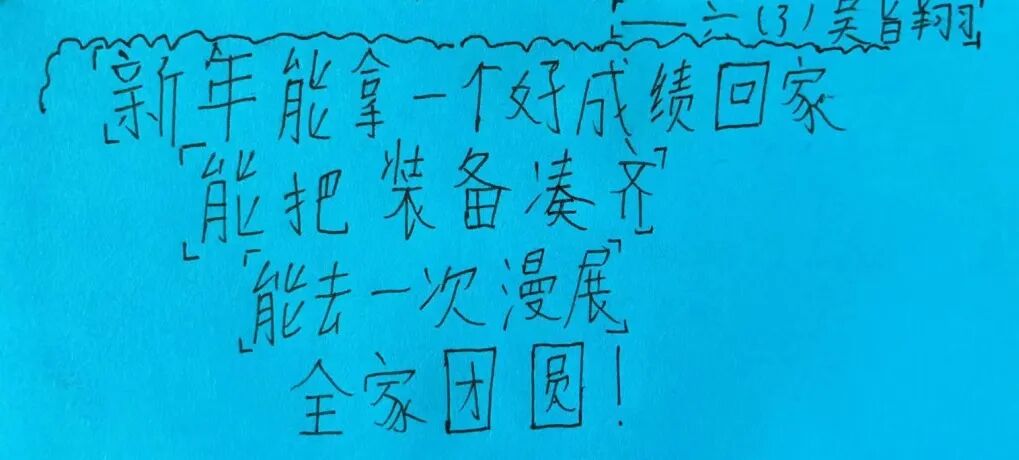 ——六（3）吴旨翔
新年能拿一个好成绩回家
能把装备凑齐
能去一次漫展
全家团圆！